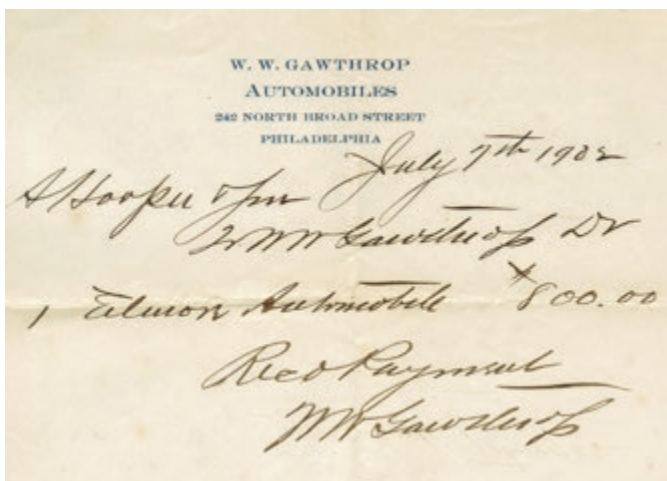 W. W. GAWTHROP
AUTOMOBILES
242 NORTH BROAD STREET
PHILADELPHIA
July 7th 1902
Hooper
W W Gawthrop Dr
1 Automobile $800.00
Recd Payment
W W Gawthrop